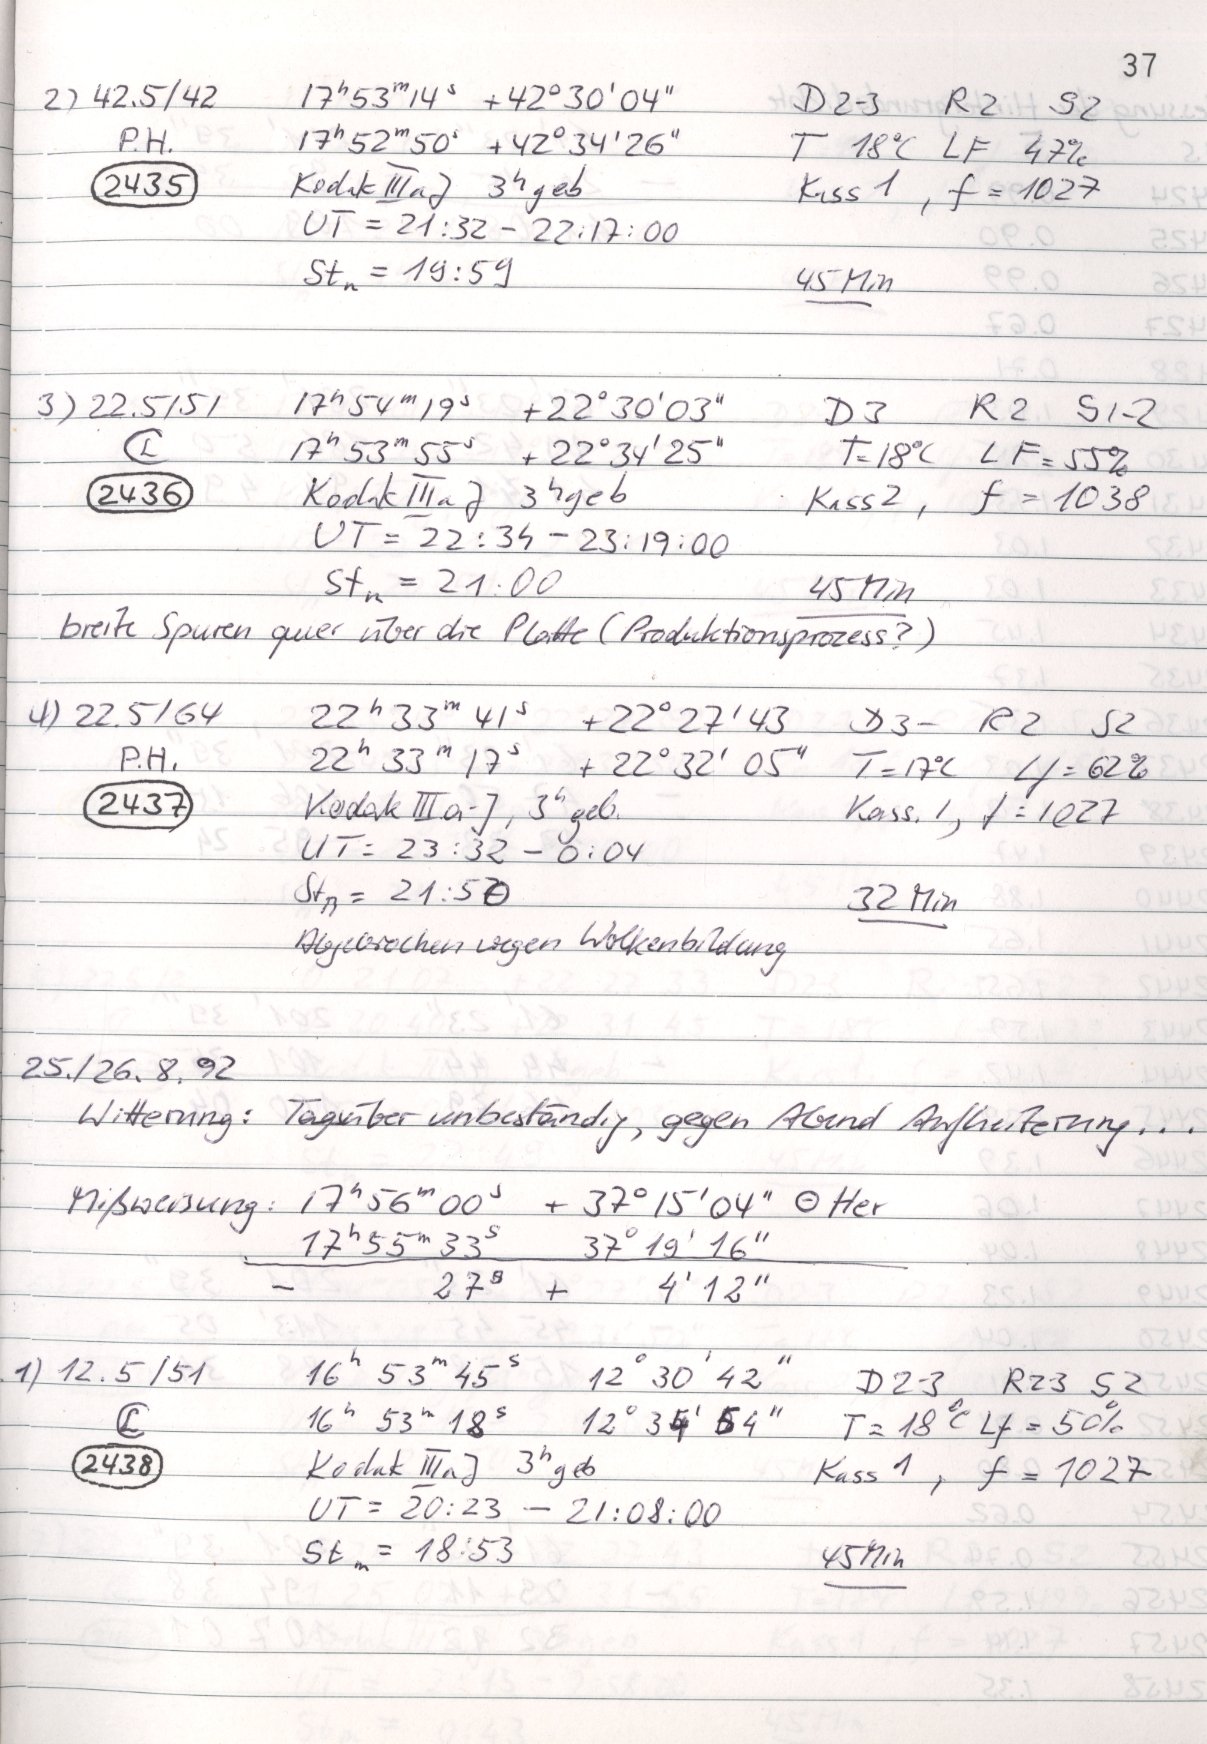 37
2) 42.5/42 17ʰ53ᵐ14ˢ +42°30'04" D2-3 R2 S2
P.H. 17ʰ52ᵐ50ˢ +42°34'26" T 18°C LF 47%
2435 Kodak IIIaJ 3ʰgeb Kass 1, f = 1027
UT = 21:32 - 22:17:00
Stₙ = 19:59 45 Min
3) 22.5/51 17ʰ54ᵐ19ˢ +22°30'03" D3 R2 S1-2
17ʰ53ᵐ55ˢ +22°34'25" T=18°C LF=55%
2436 Kodak IIIaJ 3ʰgeb Kass2, f = 1038
UT = 22:34 - 23:19:00
Stₙ = 21:00 45 Min
breite Spuren quer über die Platte (Produktionsprozess?)
4) 22.5/64 22ʰ33ᵐ41ˢ +22°27'43 D3- R2 S2
P.H. 22ʰ33ᵐ17ˢ +22°32'05" T=17°C Lf=62%
2437 Kodak IIIa-J, 3ʰ geb. Kass. 1, f=1027
UT= 23:32 - 0:04
Stₙ = 21:50 32 Min
Abgebrochen wegen Wolkenbildung
25./26.8.92
Witterung: Tagsüber unbeständig, gegen Abend Aufheiterung...
Mißweisung: 17ʰ56ᵐ00ˢ + 37°15'04" Θ Her
17ʰ55ᵐ33ˢ 37°19'16"
- 27ˢ + 4'12"
1) 12.5/51 16ʰ53ᵐ45ˢ 12°30'42" D2-3 R2-3 S2
16ʰ53ᵐ18ˢ 12°34'54" T=18°C Lf=50%
2438 Kodak IIIaJ 3ʰgeb Kass 1, f = 1027
UT = 20:23 - 21:08:00
Stₘ = 18:53 45 Min